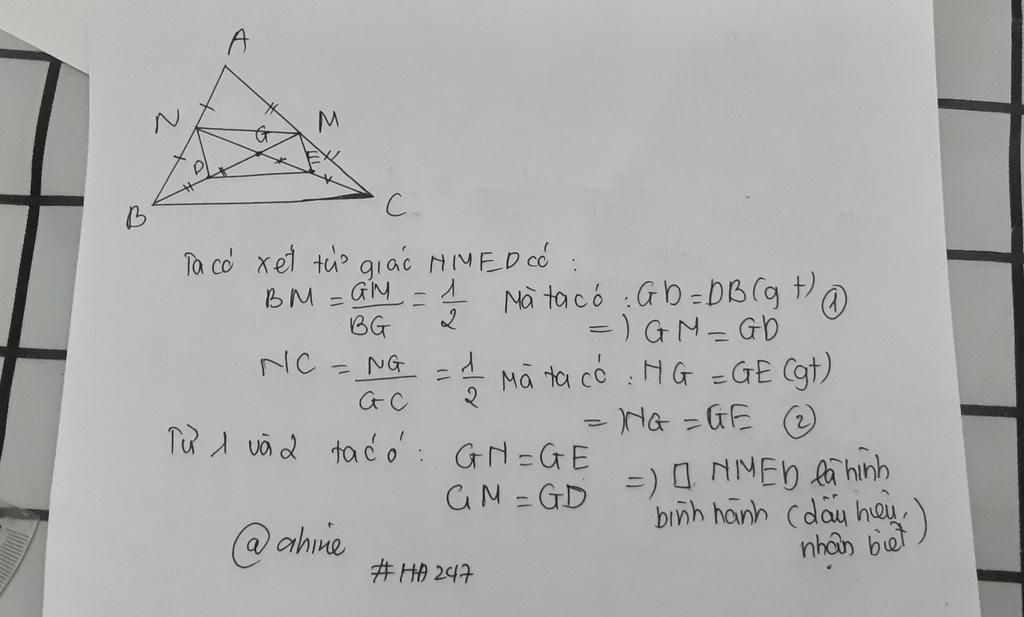 A
N
M
G
D
E
B
C
Ta có xét tứ giác NMED có :
BM = GM/BG = 1/2 Mà ta có : GD = DB (gt) ①
=) GM = GD
NC = NG/GC = 1/2 Mà ta có : NG = GE (gt)
=) NG = GE ②
Từ 1 và 2 ta có : GN = GE
GM = GD =) □ NMED là hình
bình hành (dấu hiệu
nhận biết)
@ahine
#HĐ247